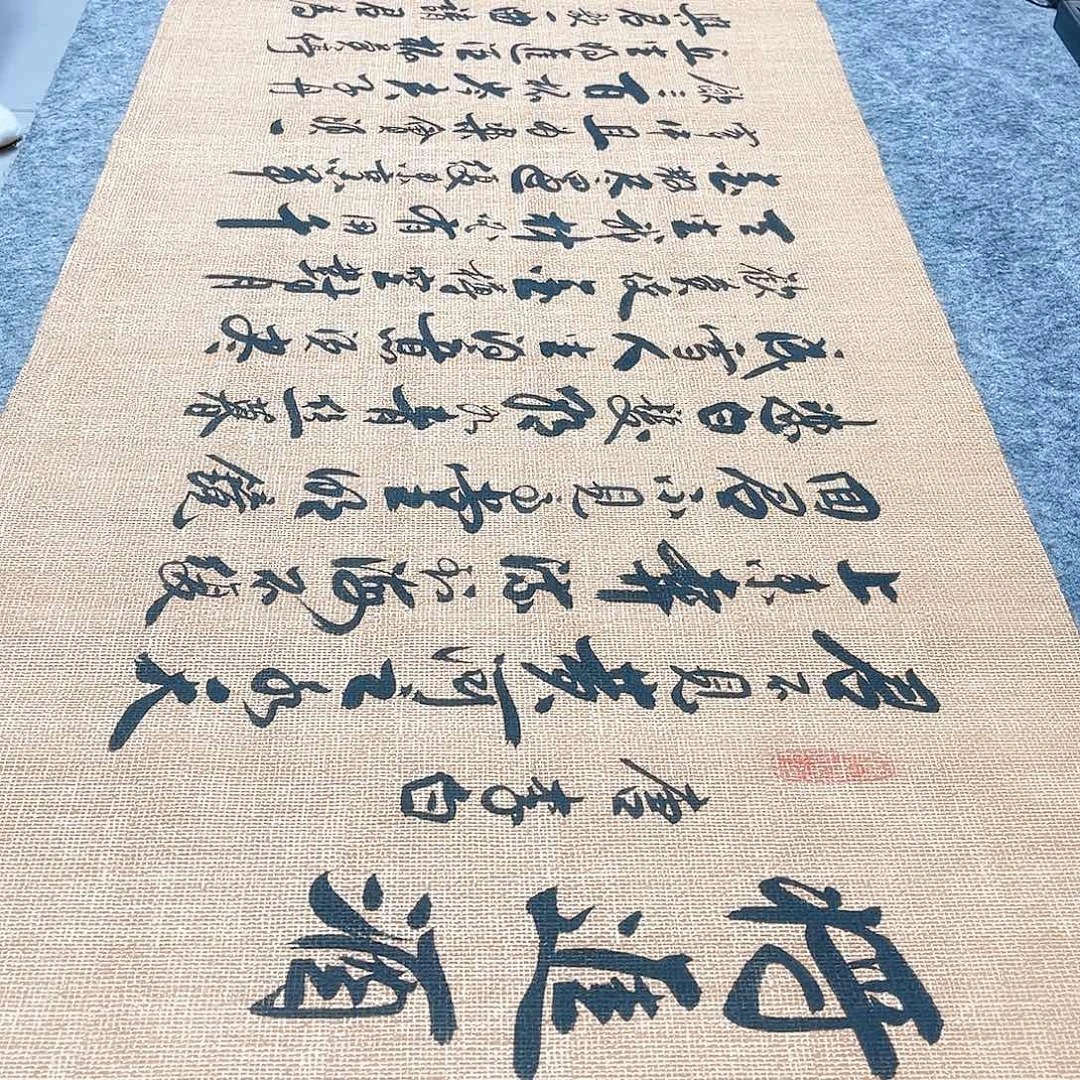 將進酒
唐李白
君不見黃河之水天
上来奔流到海不復
回君不見高堂明鏡
悲白髮朝如青絲暮
成雪人生得意須盡
歡莫使金樽空對月
天生我材必有用千
金散盡還復來烹羊
宰牛且為樂會須一
飲三百杯岑夫子丹
丘生將進酒杯莫停
與君歌一曲請君為